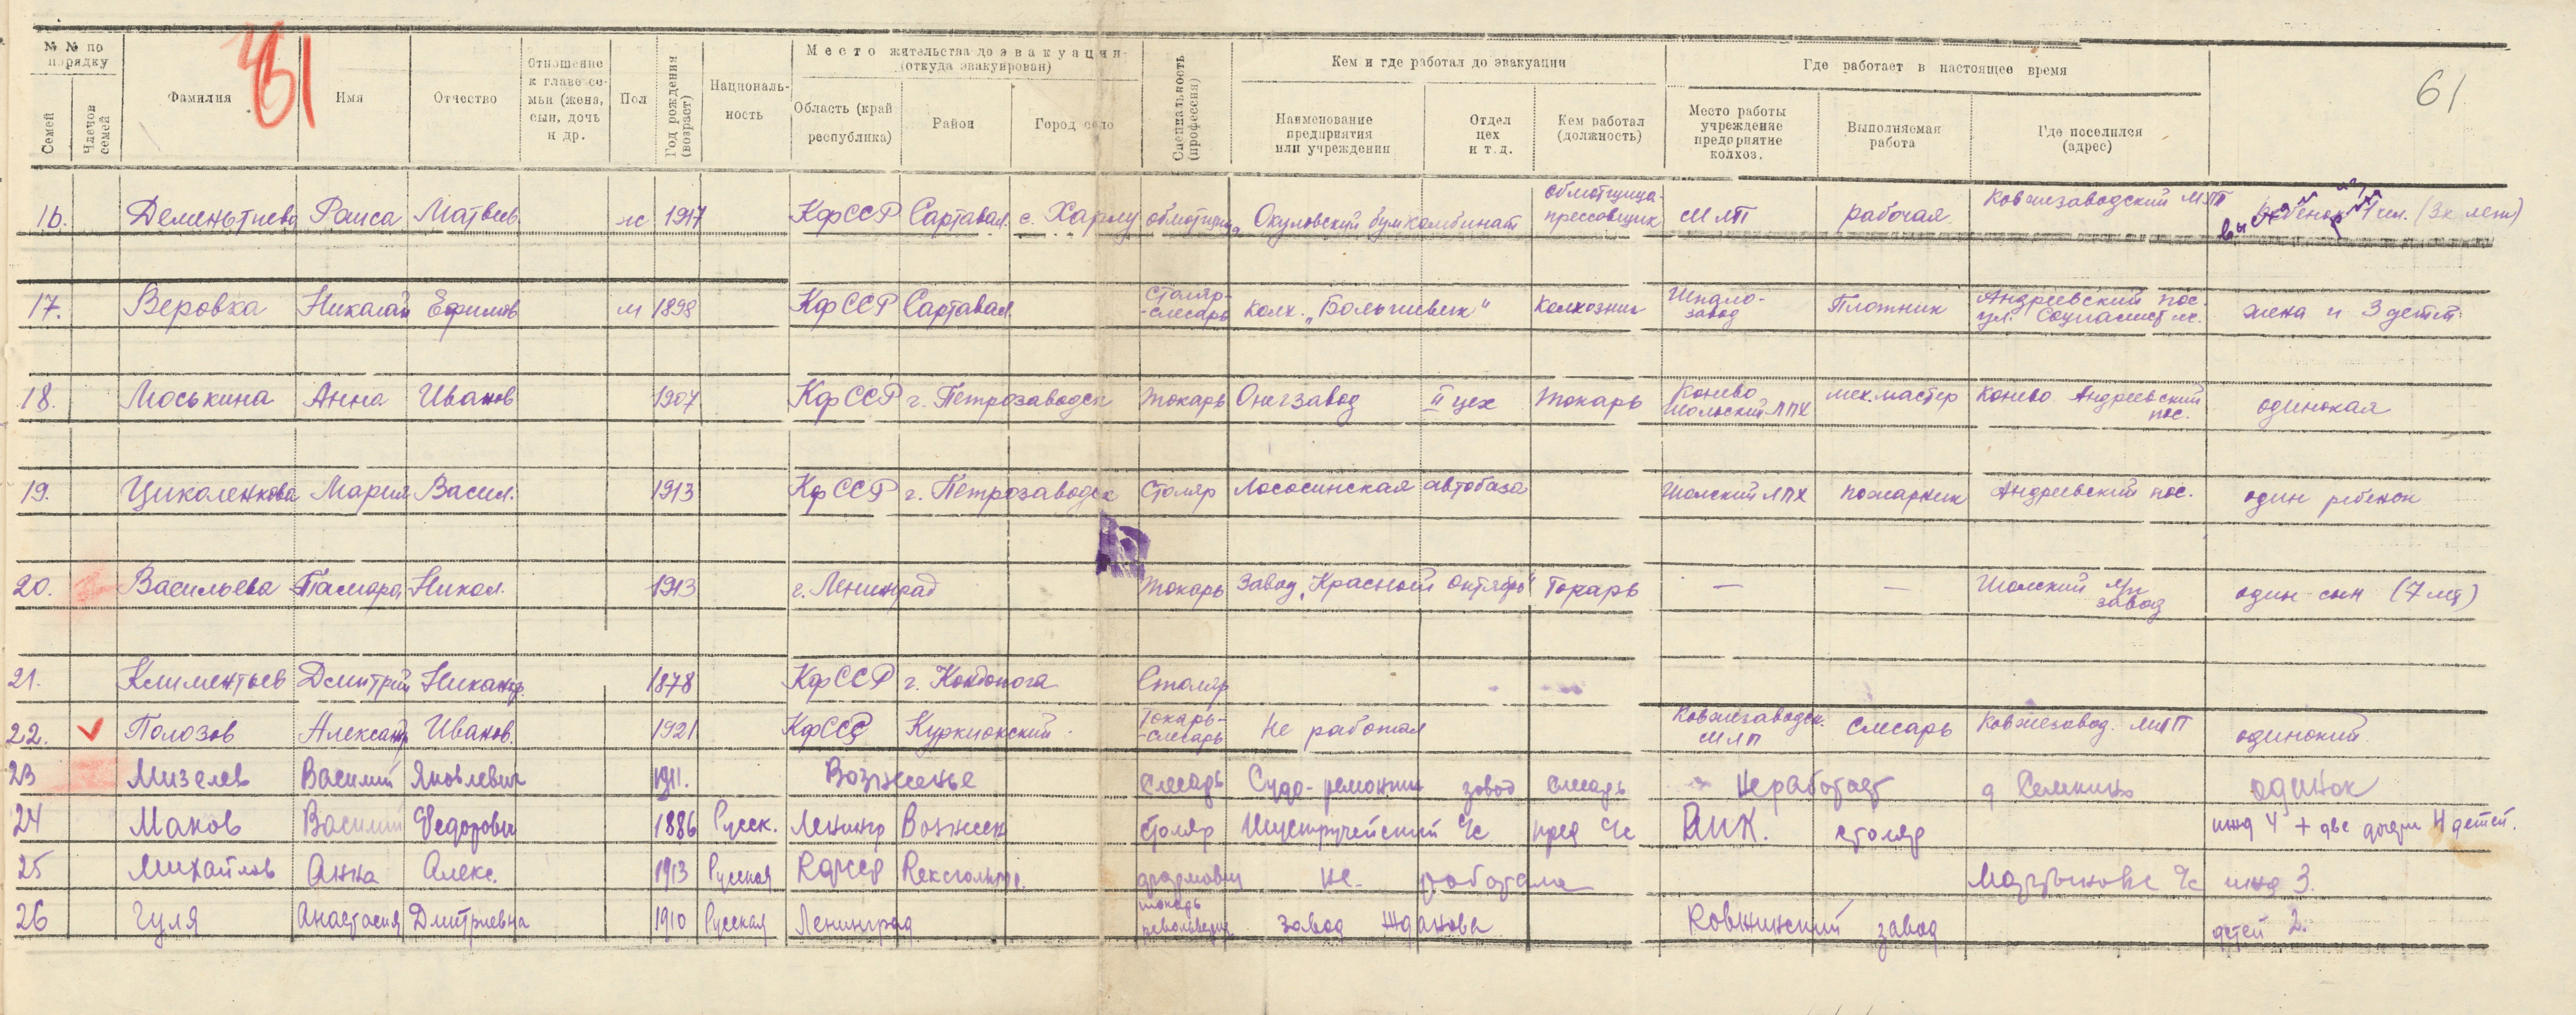 61
61
№ № по порядку
Семей
Членов семей
Фамилия
Имя
Отчество
Отношение к главе семьи (жена, сын, дочь и др.
Пол
Год рождения (возраст)
Националь-ность
Место жительства до эвакуации (откуда эвакуирован)
Область (край республика)
Район
Город село
Специальность (профессия)
Кем и где работал до эвакуации
Наименование предприятия или учреждения
Отдел цех и т.д.
Кем работал (должность)
Где работает в настоящее время
Место работы учреждение предприятие колхоз.
Выполняемая работа
Где поселился (адрес)
16. Дементиева Раиса Матвеев. ж 1917 КфССР Сартавал. с. Харлу обмотчица Окуловский бумкомбинат обмотщица-прессовщик МЛП рабочая Ковжезаводский МЛП
17. Веровка Николай Ефимов м 1898 КфССР Сартавал. Столяр-слесарь Колх. „Большевик" Колхозник Шпало-завод Плотник Андреевский пос. ул. Социалист. жена и 3 детей
18. Моськина Анна Иванов 1907 КфССР г. Петрозаводск Токарь Онегзавод II цех Токарь Конево Шольский ЛПХ мех.мастер Конево Андреевский пос. одинокая
19. Цикаленкова Мария Васил. 1913 КфССР г. Петрозаводск Столяр Лососинская автобаза Шолский ЛПХ пожарник Андреевский пос. один ребенок
20. Васильева Тамара Никол. 1913 г. Ленинград Токарь Завод „Красной Октябрь" Токарь — — Шолский л/п завод один сын (7 лет)
21. Климентьев Дмитрий Никанор. 1878 КфССР г. Кондопога Столяр
22. Полозов Александр Иванов. 1921 КфССР Куркиокский Токарь-слесарь Не работал Ковжезаводск. МЛП Слесарь Ковжезавод. МЛП одинокий
23 Мизелев Василий Яковлевич 1911. Вознесенье слесарь Судо-ремонтн завод слесарь не работает д Семкино одинок
24 Маков Василий Федорович 1886 Русск. Ленингр Вознесен столяр с/с пред с/с РИК. столяр ижд 4 + две дочери 4 детей.
25 Михайлов Анна Алекс. 1913 Русская Кфсср Кексгольмр. не работала с/с ижд 3.
26 Гуля Анастасия Дмитриевна 1910 Русская Ленинград токарь револьверщ завод Жданова Ковжинский завод детей 2.